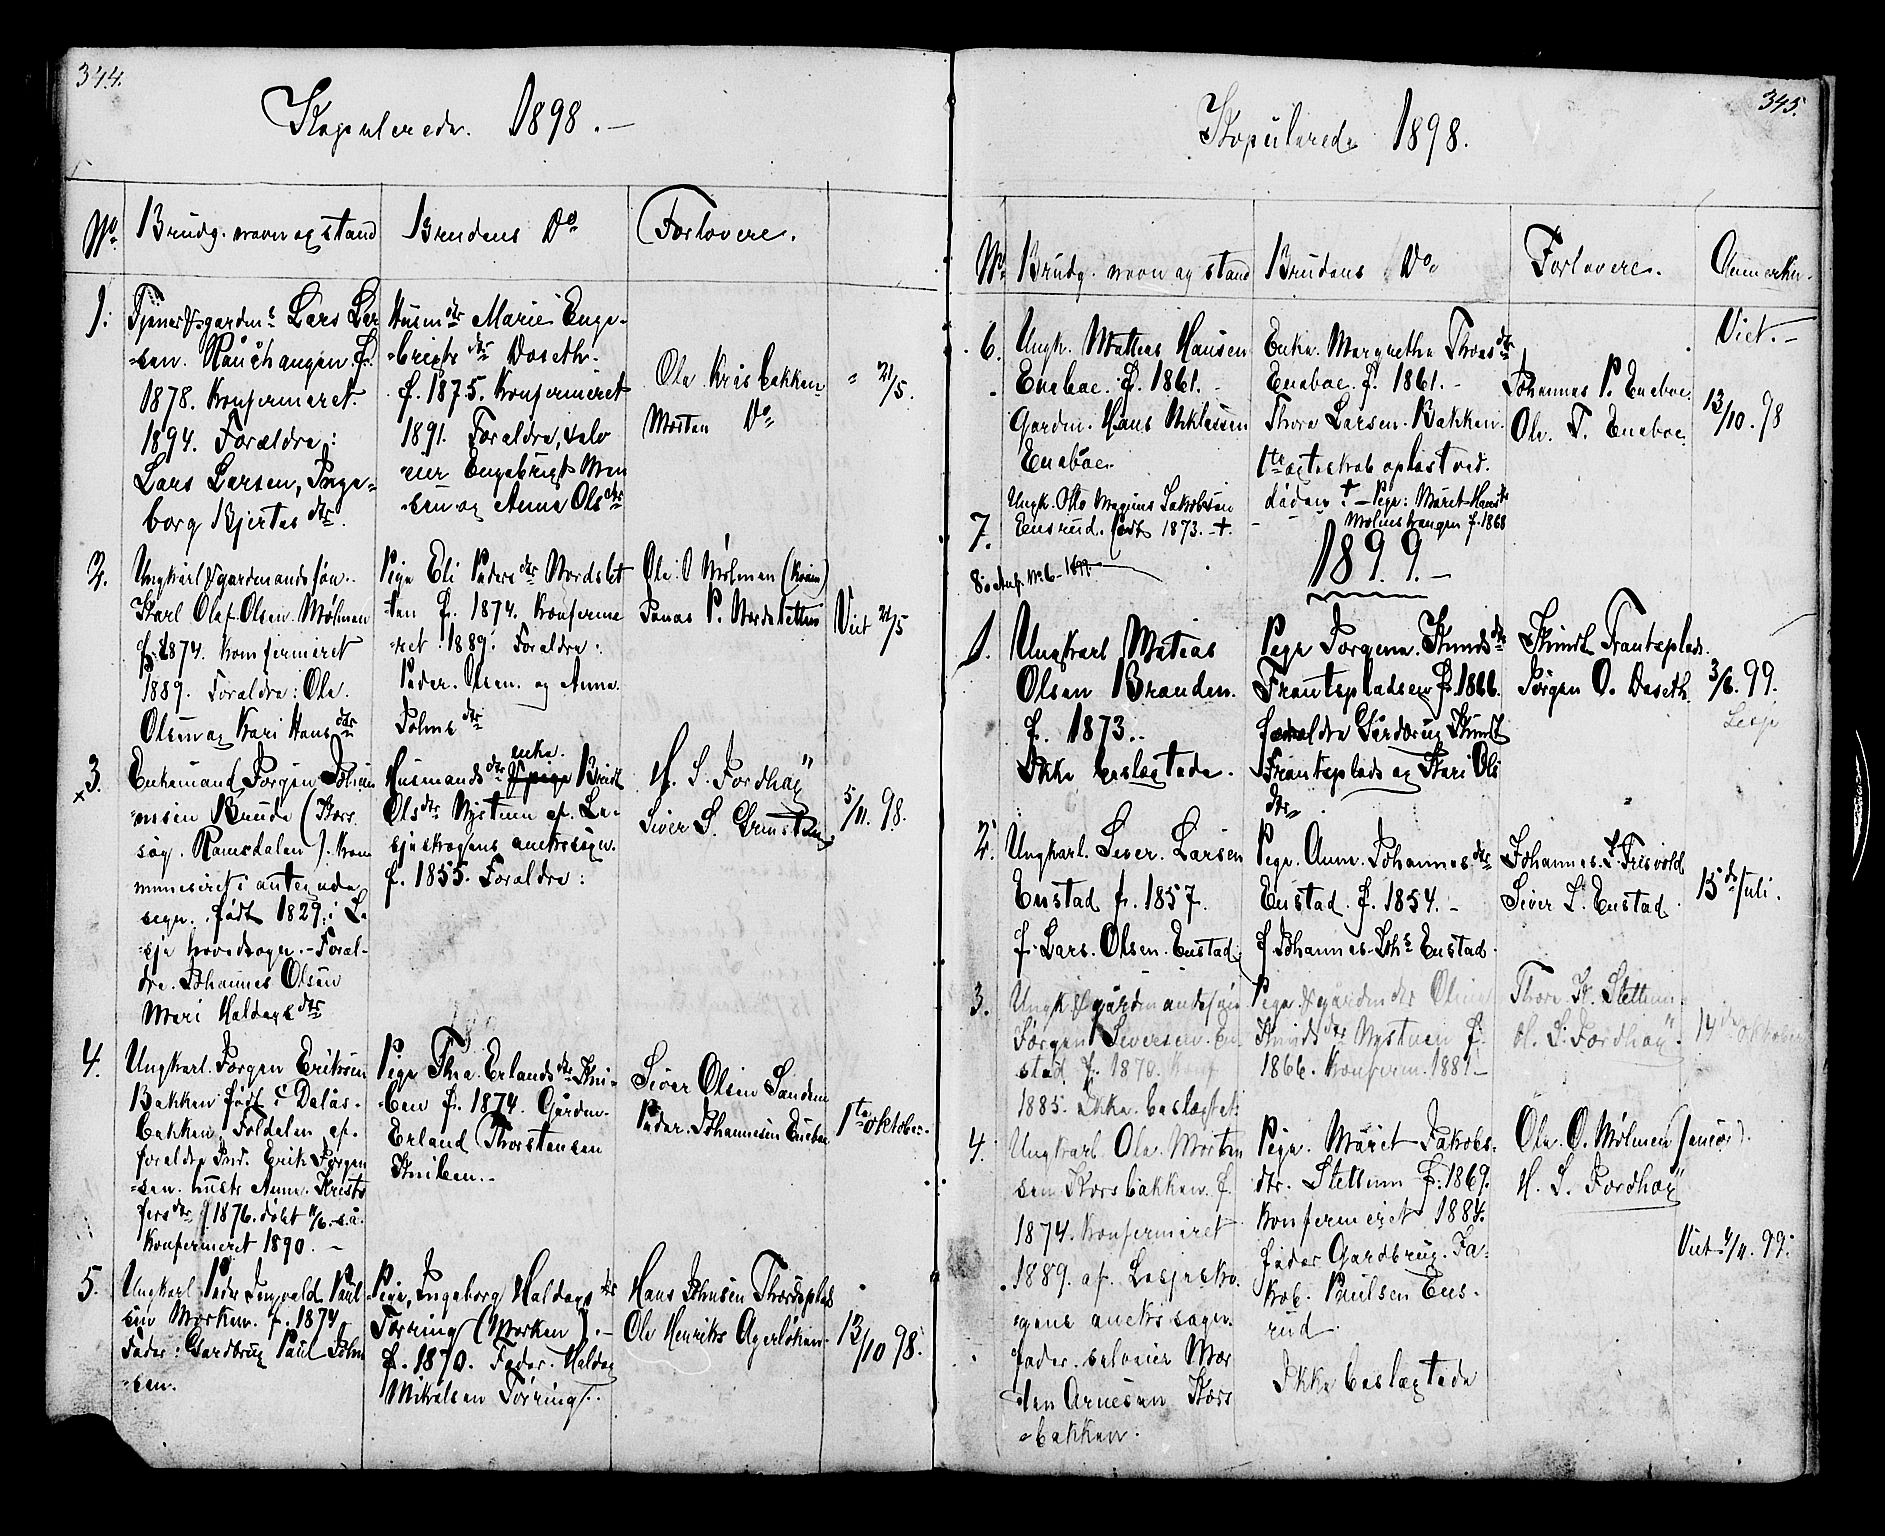 344.
Kopulerede. 1898.—
No. Brudg. navn og stand
Brudens Do
Forlovere.
1.
Tjener & gardms Lars Lar
-sen. f.
1878. Konfermeret.
1894. Forældre:
Lars Larsen, Inge-
borg Bjertes dtr.
Husm dtr Marie Enge-
-brigts dtr Doseth.
f. 1875. Konfermeret
1891. Foraldre, selv
-eier Engebrigt Mon
-sen og Anne Ols dtr
Ole Krisbakken
Mosten Do
" 21/5.
2.
Ungkarl & gardmandssøn.
Karl Olaf Olsen Mølmen
f. 1874 Konfermeret
1889. Foraldre: Ole
Olsen og Kari Hans dtr
Pige Eli Peders dtr Nordslet
-ten f. 1874. Konferme
-ret 1889. Foraldre:
Peder. Olsen. og Anne.
Johns dtr
Ole O Mølmen
Jonas P. Nordsletten
Viet 21/5
x 3.
Enkemand Jørgen Johan
-nsen Brude (Kors
sog. Ramsdalen). Kom
muneseret i
sogn. født 1829 i Le
-sje hovedsogn. - Foral-
dre. Johannes Olsen
Mari Haldags dtr
enke.
Husmands dtr & pige Brit
Ols dtr Nystuen af. Le-
sjeskogens anekssogn.
f. 1855. Foraldre:
H. S. Jordhøy
Siver S.
5/11. 98.
4.
Ungkarl. Jørgen Eriksen
Bakken født i Dalås-
bakken, Foldalen af.
foraldre Ind. Erik Jørgen
-sen. hustr Anne. Kristo
fers dtr f 1876. døbt 11/6. s.å.
Konfermeret 1890. —
Pige Thea. Erlands dtr Kni-
-ben f. 1874. Gården.
Erland Thorstensen
Kniben.-
Siver Olsen Sandem
Peder. Johannesen Enebøe
1ste oktober.
5.
Ungkarl Peder Ingvald Paul
sen Morken. f. 1874
Fader: Gardbrug Paul John
-sen.
Pige, Ingeborg Haldags dtr
Tørring (Morken). —
f. 1870. Fader. Haldag
Mikelsen Tørring.
Hans Johnsen Thordsplas
Ole Henriks Agerløkken
13/10 98.
345.
Kopulerede 1898.
No. Brudg. navn og stand
Brudens Do
Forlovere.
Anmerkn.
6.
Ungk. Mattias Hansen
Eneboe. f. 1861. -
Gardm. Hans Niklausen
Eneboe.
Enke. Margrethe Thores dtr
Eneboe. f. 1861. -
Thore Larsen. Bakken.
1te ægteskab opløst ved.
døden †
Johannes P. Eneboe.
Ole. T. Eneboe.
Viet.-
13/10. 98
7.
Ungk. Otto Magnus Jakobsen
Ensrud. født 1873. -+-
— Pige: Maret Hans dtr
Mølmskangen f. 1868
8: Anf. No 6 - 1899
1899.—
1.
Ungkarl Matias
Olsen Brenden.
f. 1873..
Ikke beslægtede.
Pige Jorgene. Knuds dtr
Frantspladsen f. 1866.
foraldre Gårdbrug Knud
Frantsplads og Kari Ols
dtr
Knud Frantsplads.
Jørgen O. Doseth
3/6. 99.
Lesje
2.
Ungkarl. Siver. Larsen
Enstad f. 1857.
f. Lars. Olsen. Enstad.
Pige. Anne. Johannes dtr
Enstad. f. 1854. -
f Johannes Johs Enstad.
Johannes. J. Trisvold
Siver L. Enstad
15de Juli.
3.
Ungk & gårdmandssøn
Jørgen Siversen. En
stad f. 1870. Konf
1885. Ikke. beslægtet:
Pige & gårdm dtr Oline
Knuds dtr Nystuen f.
1866. Konferm. 1881 -
Thore K. Slettem
H. S. Jordhøy.
14de oktober
4.
Ungkarl Ole Morten
sen Korsbakken. f.
1874. Konfermeret
1889. af. Lesjesko.
gens anekssogn.
fader. selveier Mor
ten Arnesen Kors
-bakken.
Pige. Maret Jakobs-
dtr. Slettem f. 1869.
Konfermeret 1884.
fader Gardbrug. Ja-
kob. Paulsen Ens-
rud.
Ikke beslægtede
Ole. O. Mølmen senior).
H. S. Jordhøy